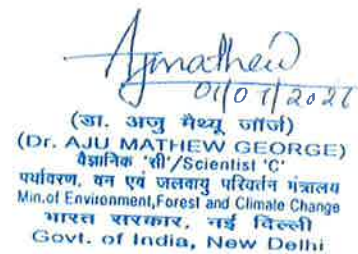 Ajmathew
(डा. अजु मैथ्यू जॉर्ज)
(Dr. AJU MATHEW GEORGE)
वैज्ञानिक 'सी'/Scientist 'C'
पर्यावरण, वन एवं जलवायु परिवर्तन मंत्रालय
Min.of Environment,Forest and Climate Change
भारत सरकार, नई दिल्ली
Govt. of India, New Delhi